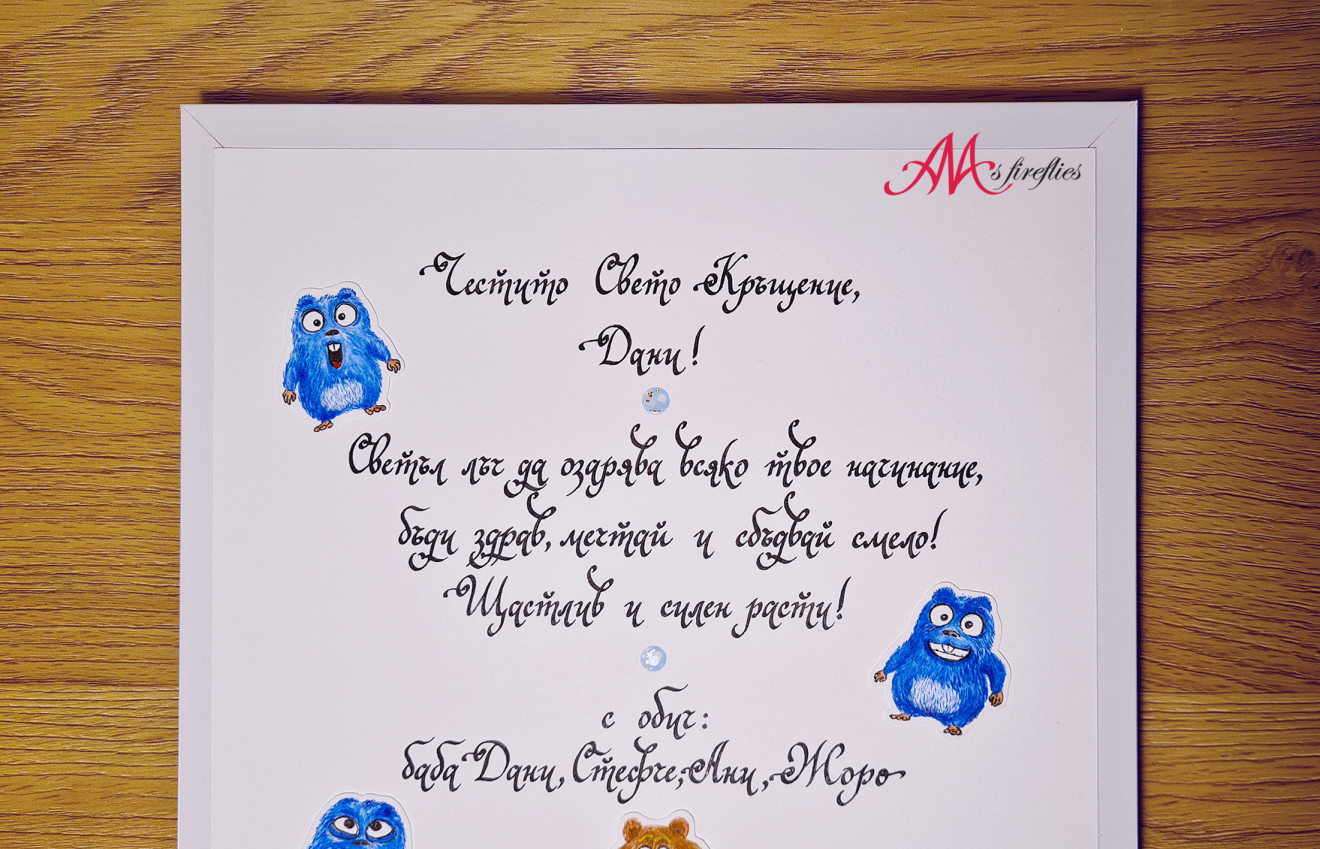 AM's fireflies
Честито Свето Кръщение,
Дани!
Светъл лъч да озарява всяко твое начинание,
бъди здрав, мечтай и сбъдвай смело!
Щастлив и силен расти!
с обич:
баба Дани, Стефче, Ани, Жоро